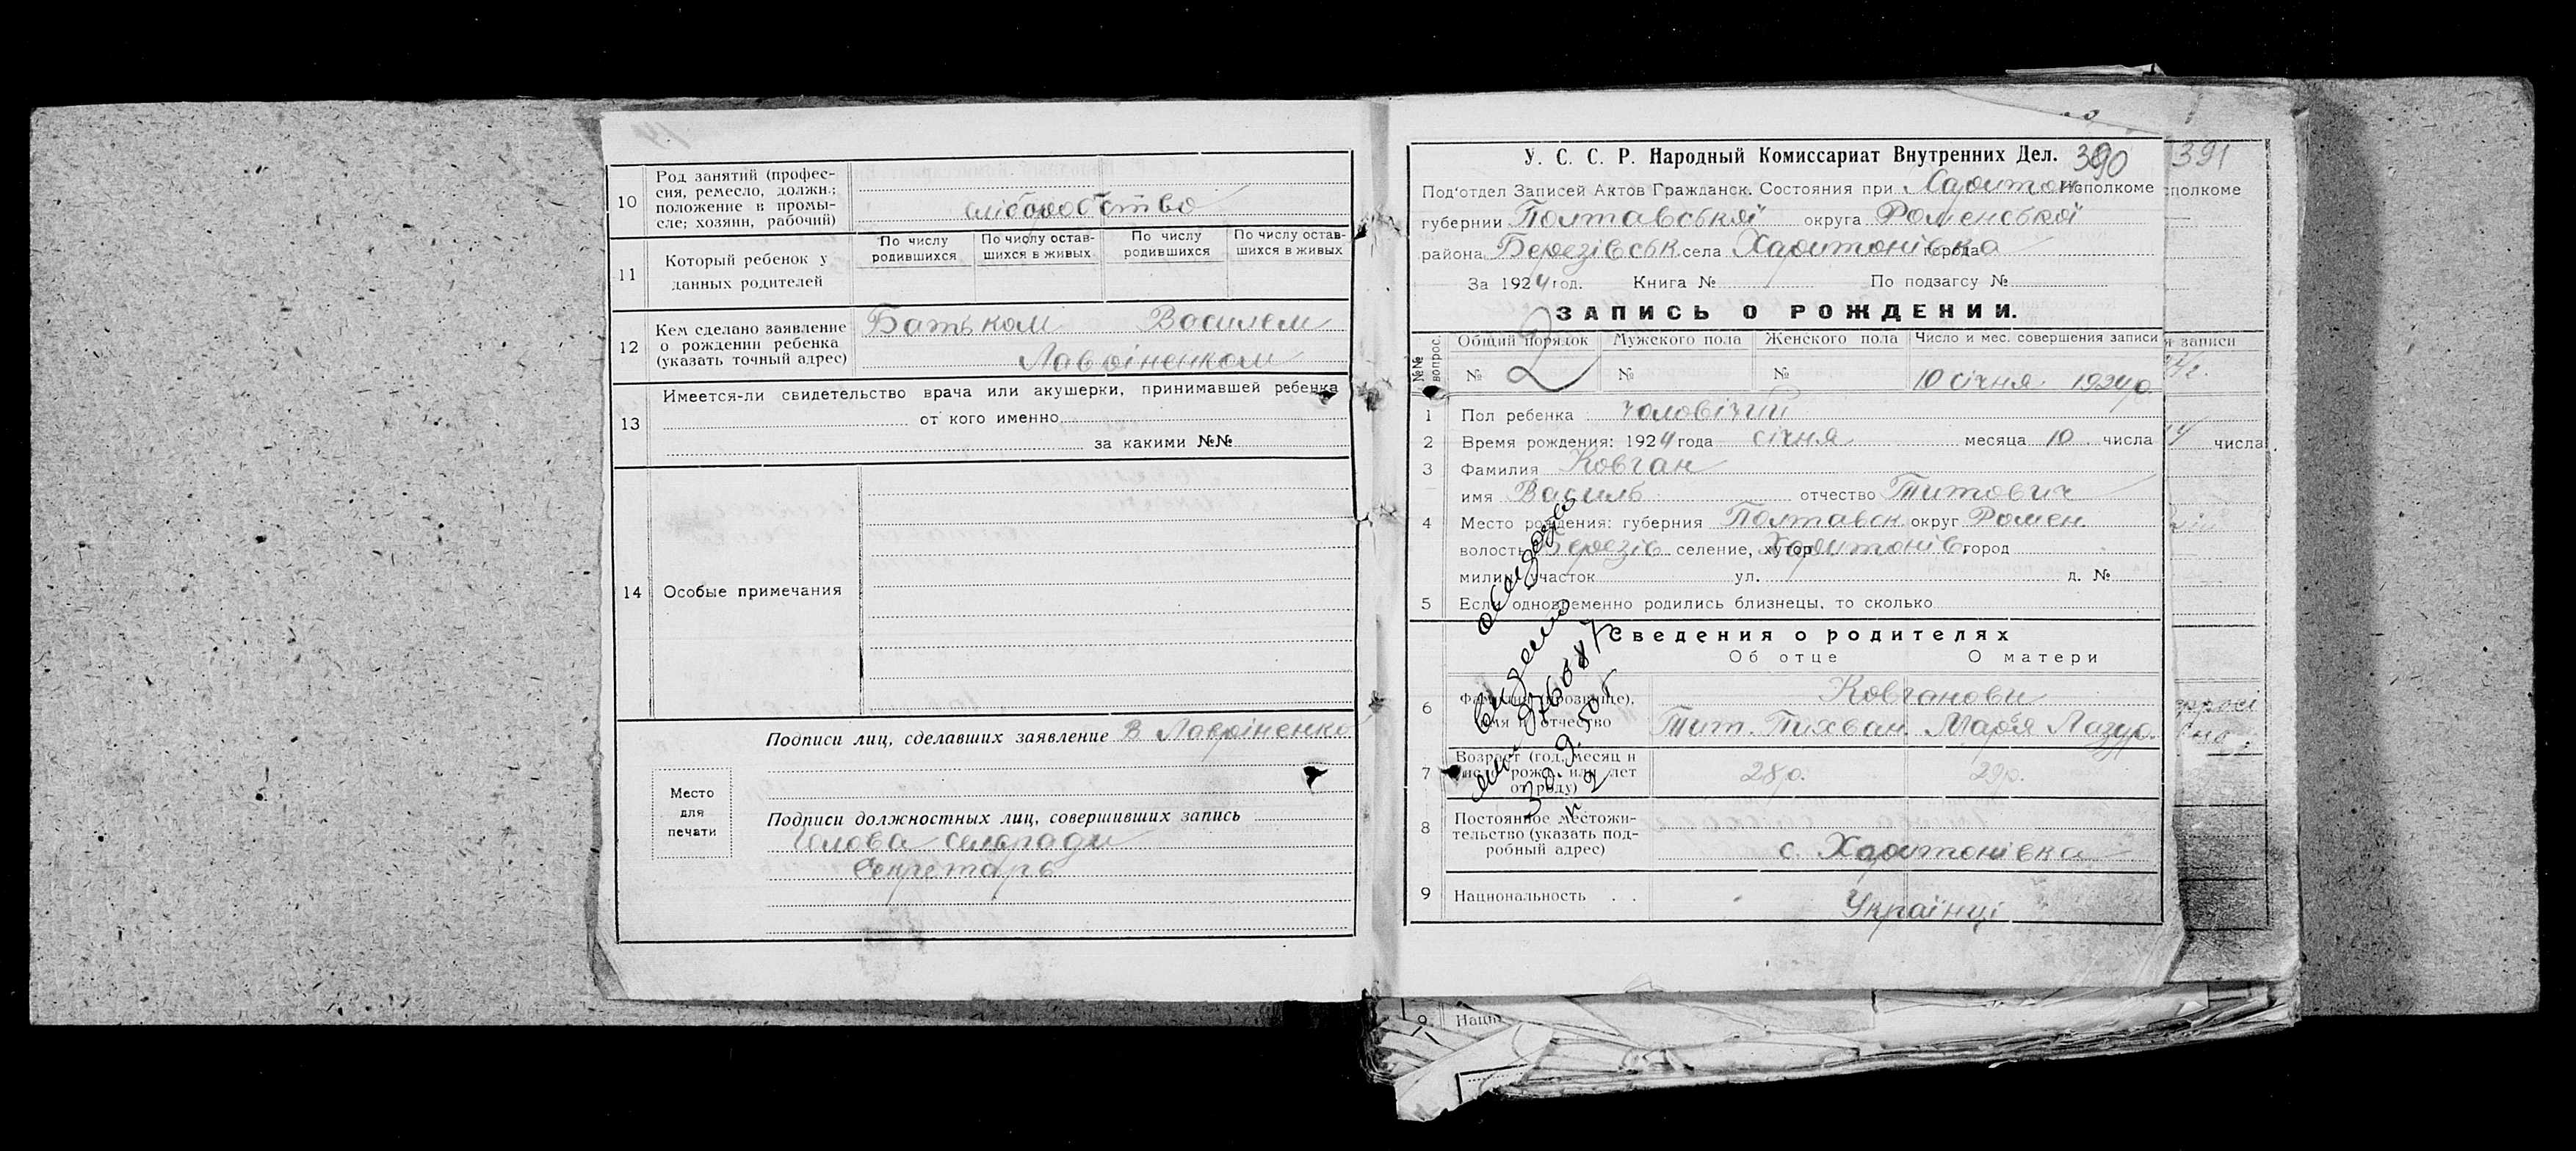 10 Род занятий (профес-
сия, ремесло, должн.;
положение в промы-
сле; хозяин, рабочий)
хліборобство
11 Который ребенок у
данных родителей
По числу родившихся
По числу остав-шихся в живых
По числу родившихся
По числу остав-шихся в живых
12 Кем сделано заявление
о рождении ребенка
(указать точный адрес)
Батьком Василем
Лавріненком
13 Имеется-ли свидетельство врача или акушерки, принимавшей ребенка
от кого именно
за какими №№
14 Особые примечания
Подписи лиц, сделавших заявление В Лавріненко
Место
для
печати
Подписи должностных лиц, совершивших запись
Голова сельради
Секретарь
У. С. С. Р. Народный Комиссариат Внутренних Дел. 390
Под'отдел Записей Актов Гражданск. Состояния при Харитон Исполкоме
губернии Полтавської округа Роменської
района Березівськ села Харитонівка города
За 1924 год. Книга № По подзагсу №
ЗАПИСЬ О РОЖДЕНИИ.
№№ вопрос.
Общий порядок Мужского пола Женского пола Число и мес. совершения записи
№ 2 № № 10 січня 1924 р.
1 Пол ребенка чоловічий
2 Время рождения: 1924 года січня месяца 10 числа
3 Фамилия Ковган
имя Василь отчество Титович
4 Место рождения: губерния Полтавск округ Ромен
волость Березів селение, хутор Харитонів город
милиц. участок ул. д. №
5 Если одновременно родились близнецы, то сколько
Сведения о родителях
Об отце О матери
6 Фамилия (прозвище),
имя и отчество
Ковганови
Тит Марія Лазур.
7 Возраст (год, месяц и
число рожд. или лет
от роду)
28 р. 29 р.
8 Постоянное местожи-
тельство (указать под-
робный адрес)
с. Харитонівка
9 Национальность . .
Українці
выдано
30.9.50 г
391
сполкоме
я записи
числа
9 Нацио